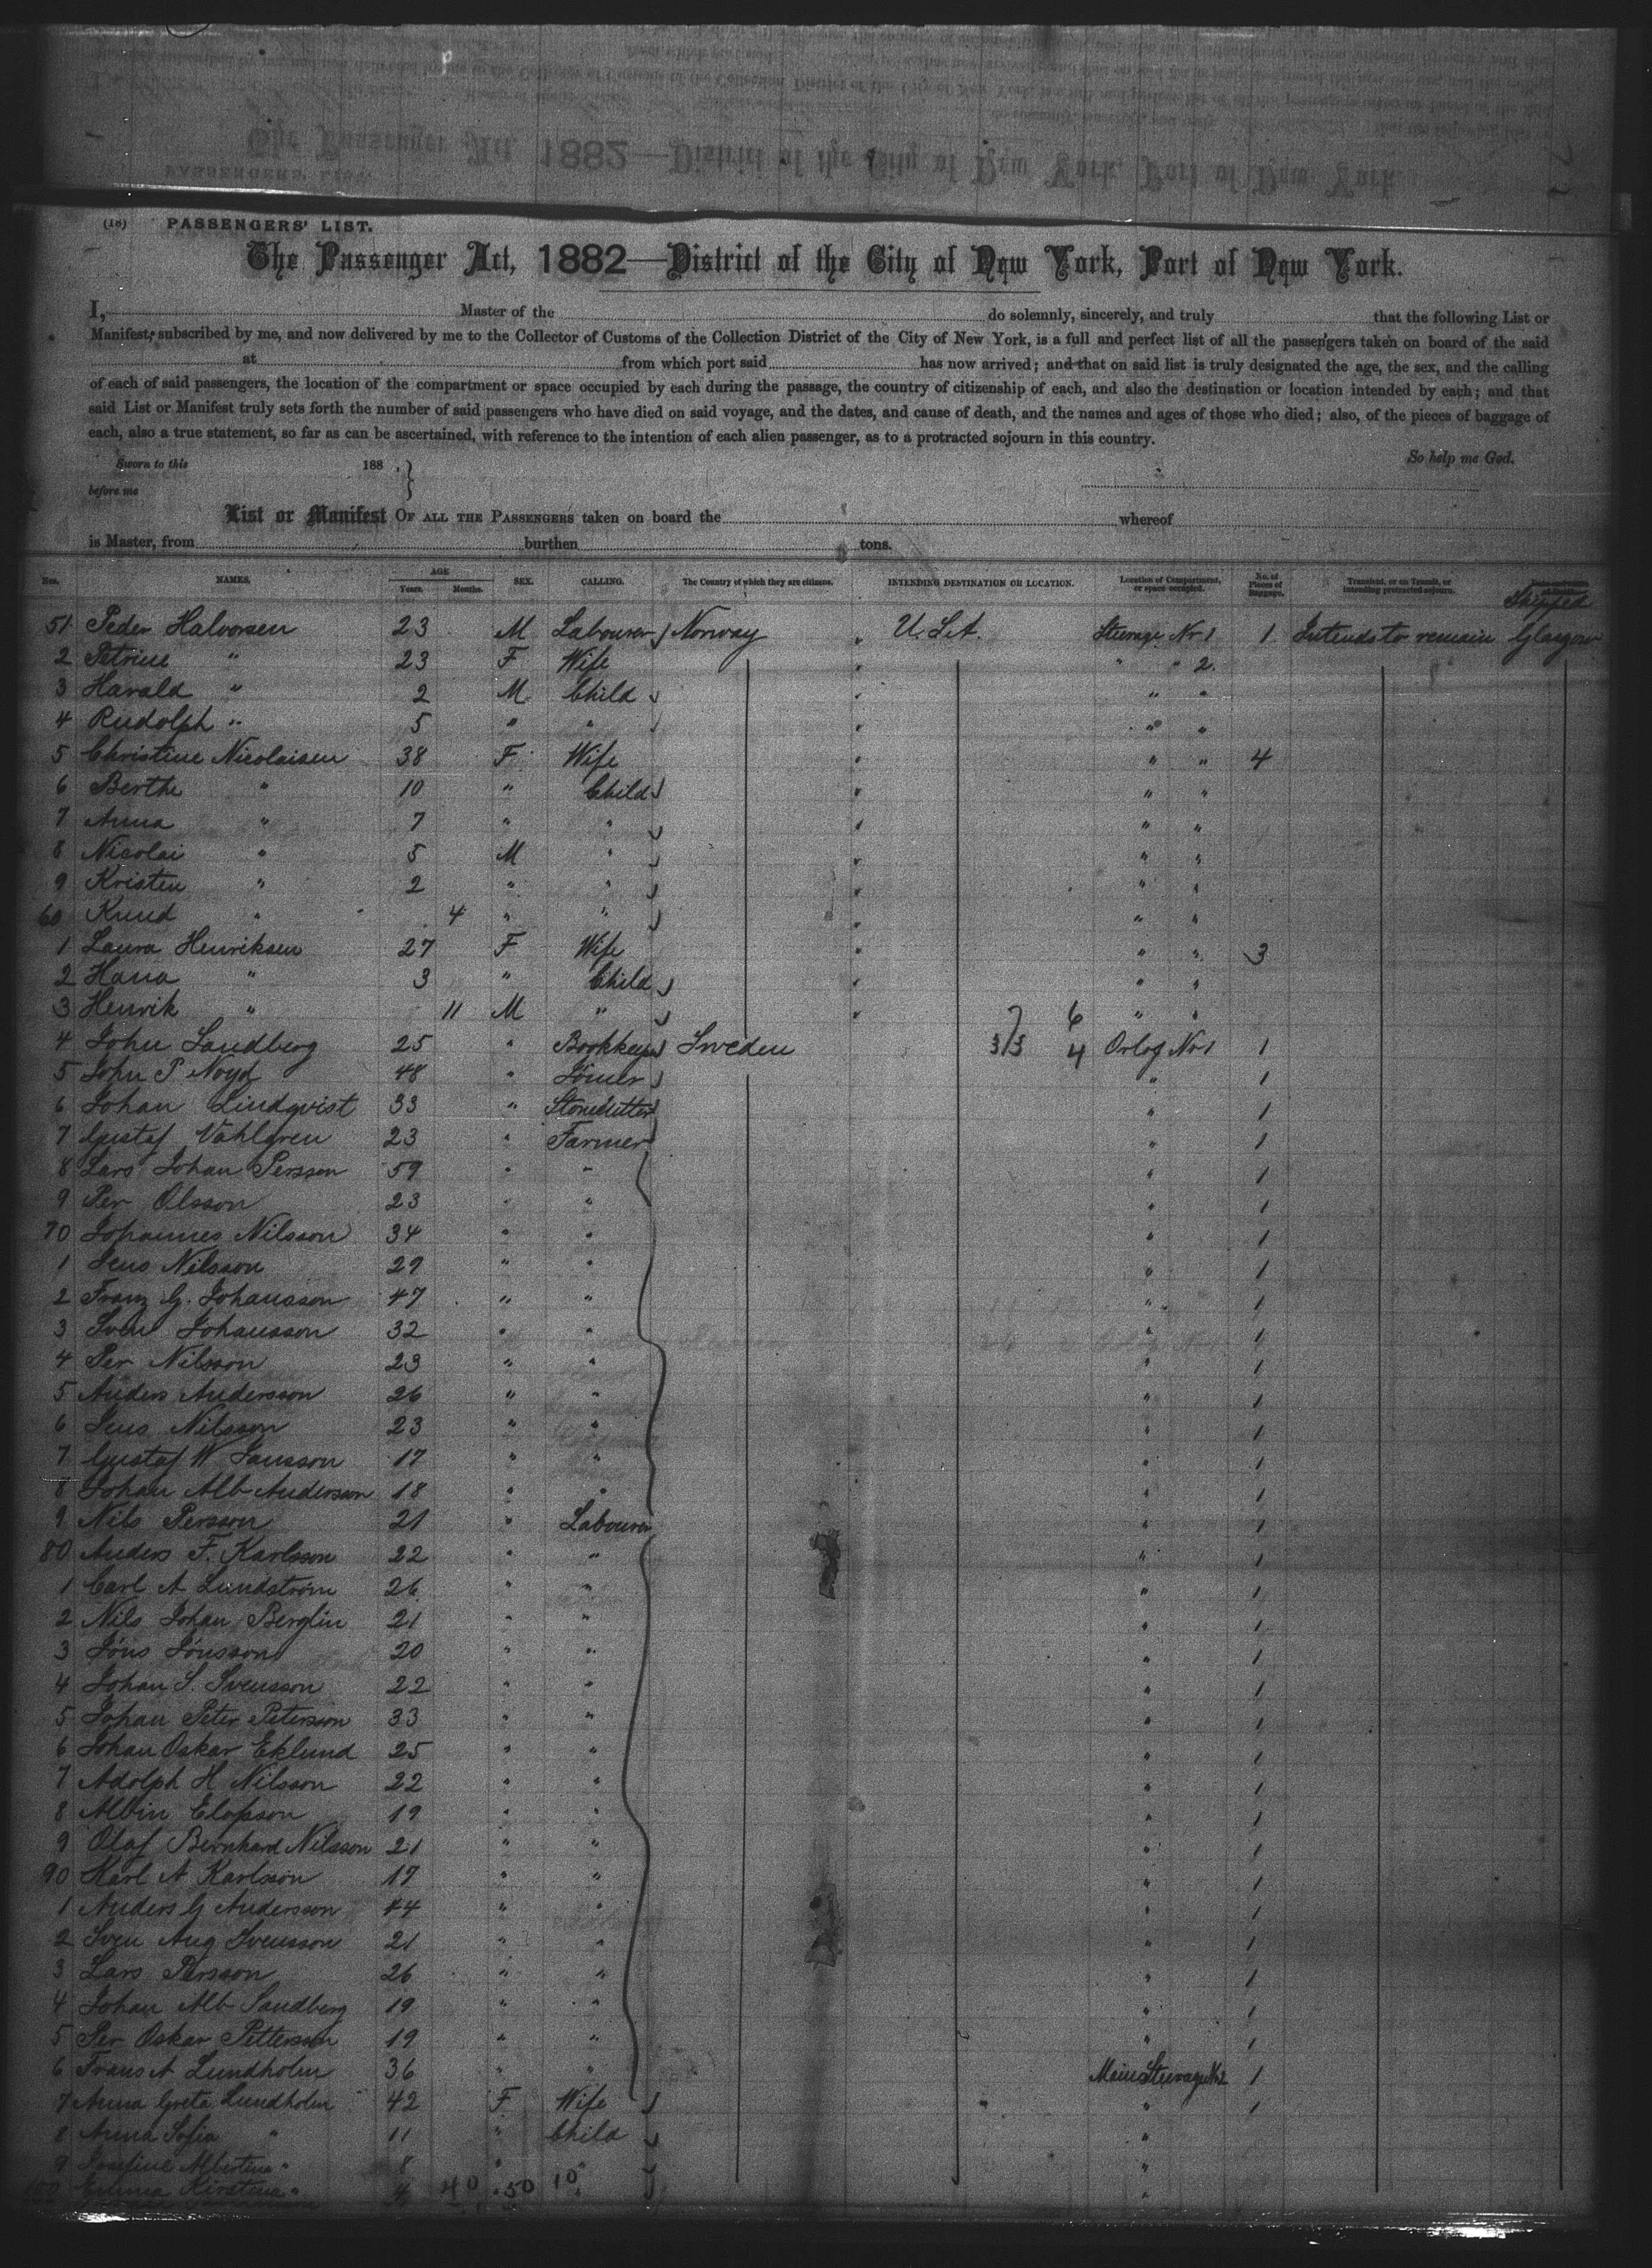 (18) PASSENGERS' LIST.
The Passenger Act, 1882—District of the City of New York, Port of New York.
I, Master of the do solemnly, sincerely, and truly that the following List or
Manifest, subscribed by me, and now delivered by me to the Collector of Customs of the Collection District of the City of New York, is a full and perfect list of all the passengers taken on board of the said
at from which port said has now arrived; and that on said list is truly designated the age, the sex, and the calling
of each of said passengers, the location of the compartment or space occupied by each during the passage, the country of citizenship of each, and also the destination or location intended by each; and that
said List or Manifest truly sets forth the number of said passengers who have died on said voyage, and the dates, and cause of death, and the names and ages of those who died; also, of the pieces of baggage of
each, also a true statement, so far as can be ascertained, with reference to the intention of each alien passenger, as to a protracted sojourn in this country.
Sworn to this 188 . } So help me God.
before me
List or Manifest OF ALL THE PASSENGERS taken on board the whereof
is Master, from burthen tons.
Nos. NAMES. AGE Years. Months. SEX. CALLING. The Country of which they are citizens. INTENDING DESTINATION OR LOCATION. Location of Compartment, or space occupied. No. of Pieces of Baggage. Transient, or on Transit, or intending protracted sojourn. Shipped
51 Peder Halvorsen 23 M Labourer Norway " U.S.A. Steerage Nr 1 1 Intends to remain Glasgow
2 Petrine " 23 F Wife " " " 2.
3 Harald " 2 M Child " " "
4 Rudolph " 5 " " " " "
5 Christine Nicolaisen 38 F Wife " " " 4
6 Berthe " 10 " Child " " "
7 Anna " 7 " " " " "
8 Nicolai " 5 M " " " "
9 Kristen " 2 " " " " "
60 Knud " 4 " " " " "
1 Laura Henriksen 27 F Wife " " " 3
2 Hana " 3 " Child " " "
3 Henrik " 11 M " " 7 6 " "
4 John Sandberg 25 " Bookkeeper Sweden 313 4 Orlop Nr 1 1
5 John P Noyd 48 " Joiner " 1
6 Johan Lindqvist 33 " Stonecutter " 1
7 Gustaf Vahlgren 23 " Farmer " 1
8 Lars Johan Persson 59 " " " 1
9 Per Olsson 23 " " " 1
70 Johannes Nilsson 34 " " " 1
1 Jens Nilsson 29 " " " 1
2 Franz G. Johansson 47 " " " 1
3 Sven Johansson 32 " " " 1
4 Per Nilsson 23 " " " 1
5 Anders Andersson 26 " " " 1
6 Jens Nilsson 23 " " " 1
7 Gustaf W Jansson 17 " " " 1
8 Johan Alb Anderson 18 " " " 1
9 Nils Persson 21 " Labourer " 1
80 Anders F. Karlsson 22 " " " 1
1 Carl A Lundström 26 " " " 1
2 Nils Johan Berglin 21 " " " 1
3 Jöns Jönsson 20 " " " 1
4 Johan S. Svensson 22 " " " 1
5 Johan Peter Peterson 33 " " " 1
6 Johan Oskar Eklund 25 " " " 1
7 Adolph H Nilsson 22 " " " 1
8 Albin Elofsson 19 " " " 1
9 Olaf Bernhard Nilsson 21 " " " 1
90 Karl A Karlsson 17 " " " 1
1 Anders G Andersson 44 " " " 1
2 Sven Aug Svensson 21 " " " 1
3 Lars Persson 26 " " " 1
4 Johan Alb Sandberg 19 " " " 1
5 Per Oskar Petterson 19 " " " 1
6 Frans A Lundholm 36 " " Main Steerage Nr2 1
7 Anna Greta Lundholm 42 F Wife " 1
8 Anna Sofia " 11 " Child "
9 Josefine Albertina " 8 " "
100 Emma Kirstina " 4 40 " 50 10 "